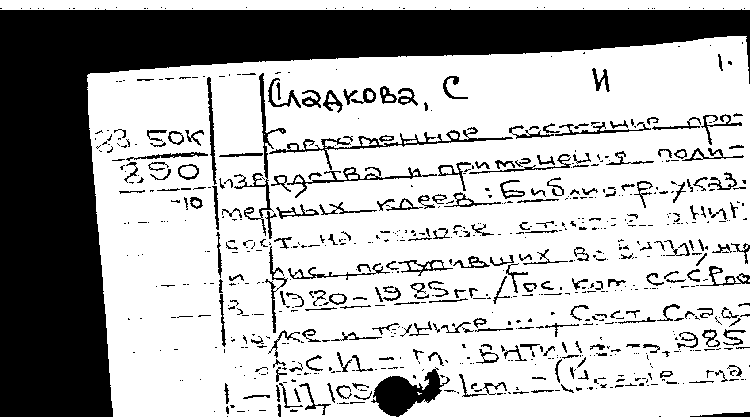 1.
Сладкова, С И
33.50К
290
-10
Современное состояние про-
изводства и применения поли-
мерных клеев: Библиогр. указ.
сост. на основе отчетов о НИР
и дис., поступивших во ВНТИЦентр
в 1980-1985 гг. / Гос. ком. СССР по
науке и технике ...; Сост. Слад-
кова С.И - М. : ВНТИЦентр, 1985
. - [1], 105 ст. - (Новые ма